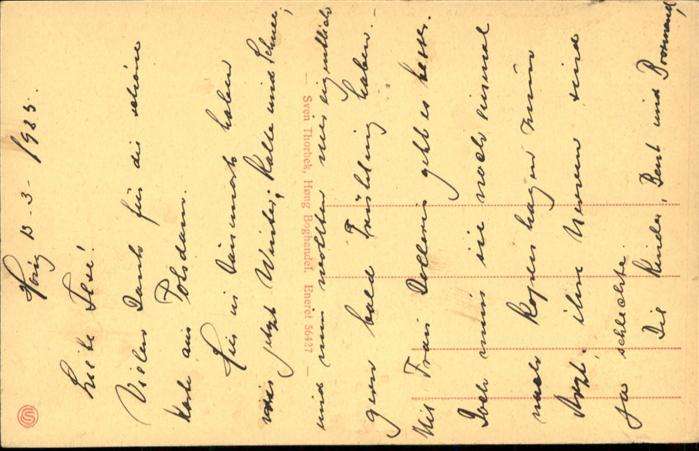 Høng 13-3-1923.
Liebe Leni!
Vielen Dank für die schöne
Karte aus Potsdam.
Hier in Dänemark haben
wir jetzt Winter, Kälte und Schnee,
und nun wollten wir eigentlich
gern bald Frühling haben.
Mit Frau Dollerin geht es besser.
Doch muss sie noch einmal
nach Kopenhagen zum
Arzt; ihre Nerven sind
ja schlecht.
Die Kinder, Bent und
— Sven Thorbek, Høng Boghandel. Eneret 56427 —